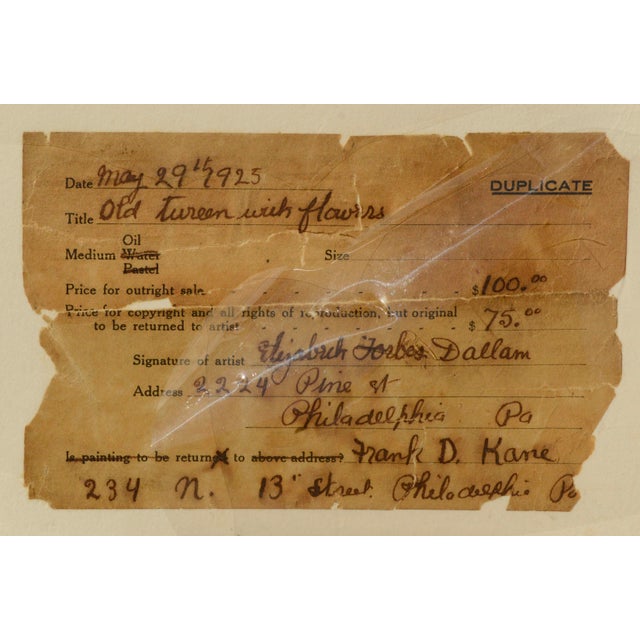 Date May 29th 1925
DUPLICATE
Title Old tureen with flowers
Oil
Medium Water Size
Pastel
Price for outright sale - - - - - - - $100.00
Price for copyright and all rights of reproduction, but original
to be returned to artist - - - - - - $ 75.00
Signature of artist Elizabeth Forbes Dallam
Address 2224 Pine st
Philadelphia Pa
Is painting to be returned to above address? Frank D. Kane
234 N. 13" Street. Philadelphia Pa